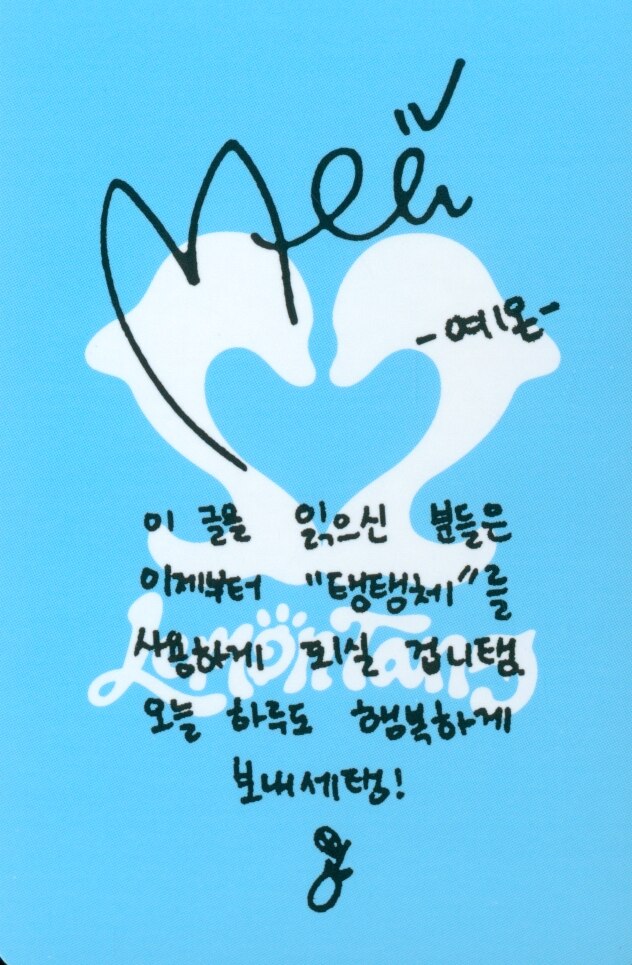 -예온-
이 글을 읽으신 분들은
이제부터 "탱탱체"를
사용하게 되실 겁니탱.
오늘 하루도 행복하게
보내세탱!
LemonTang